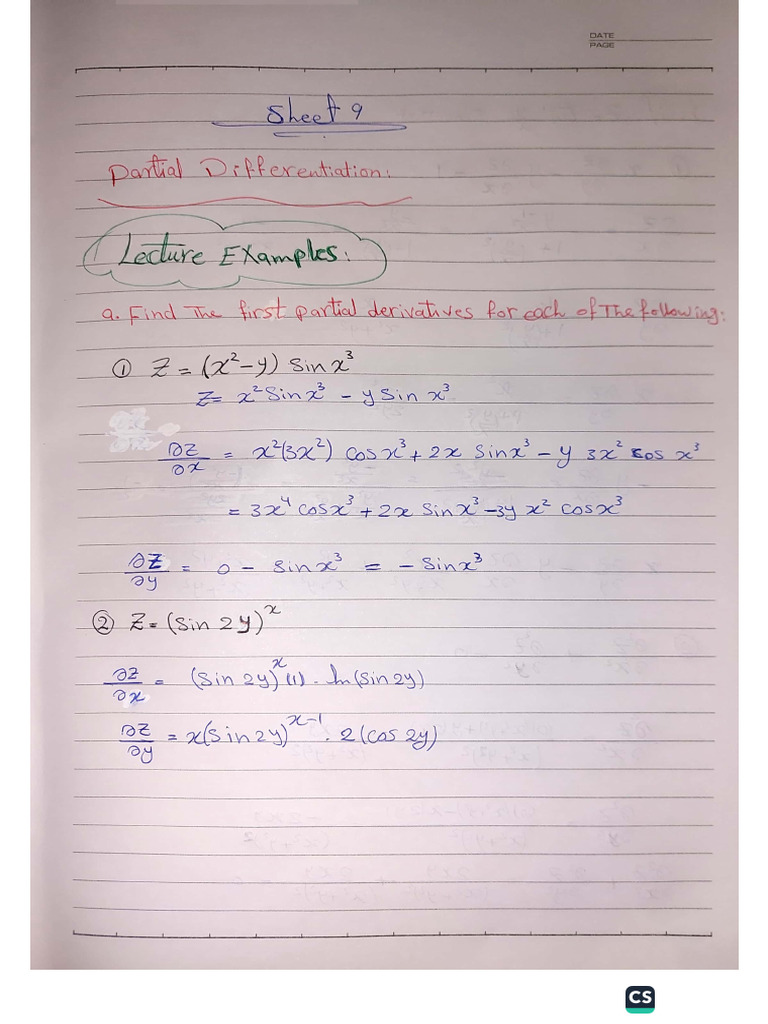 DATE
PAGE
Sheet 9
Partial Differentiation:
Lecture Examples:
a. Find The first partial derivatives for each of The following:
① Z = (x² - y) Sin x³
Z = x² Sin x³ - y Sin x³
∂Z/∂x = x²(3x²) cos x³ + 2x Sin x³ - y 3x² cos x³
= 3x⁴ cos x³ + 2x Sin x³ - 3y x² cos x³
∂Z/∂y = 0 - Sin x³ = - Sin x³
② Z = (Sin 2y)ˣ
∂Z/∂x = (Sin 2y)ˣ (1) . ln (Sin 2y)
∂Z/∂y = x (Sin 2y)ˣ⁻¹ . 2 (cos 2y)
CS